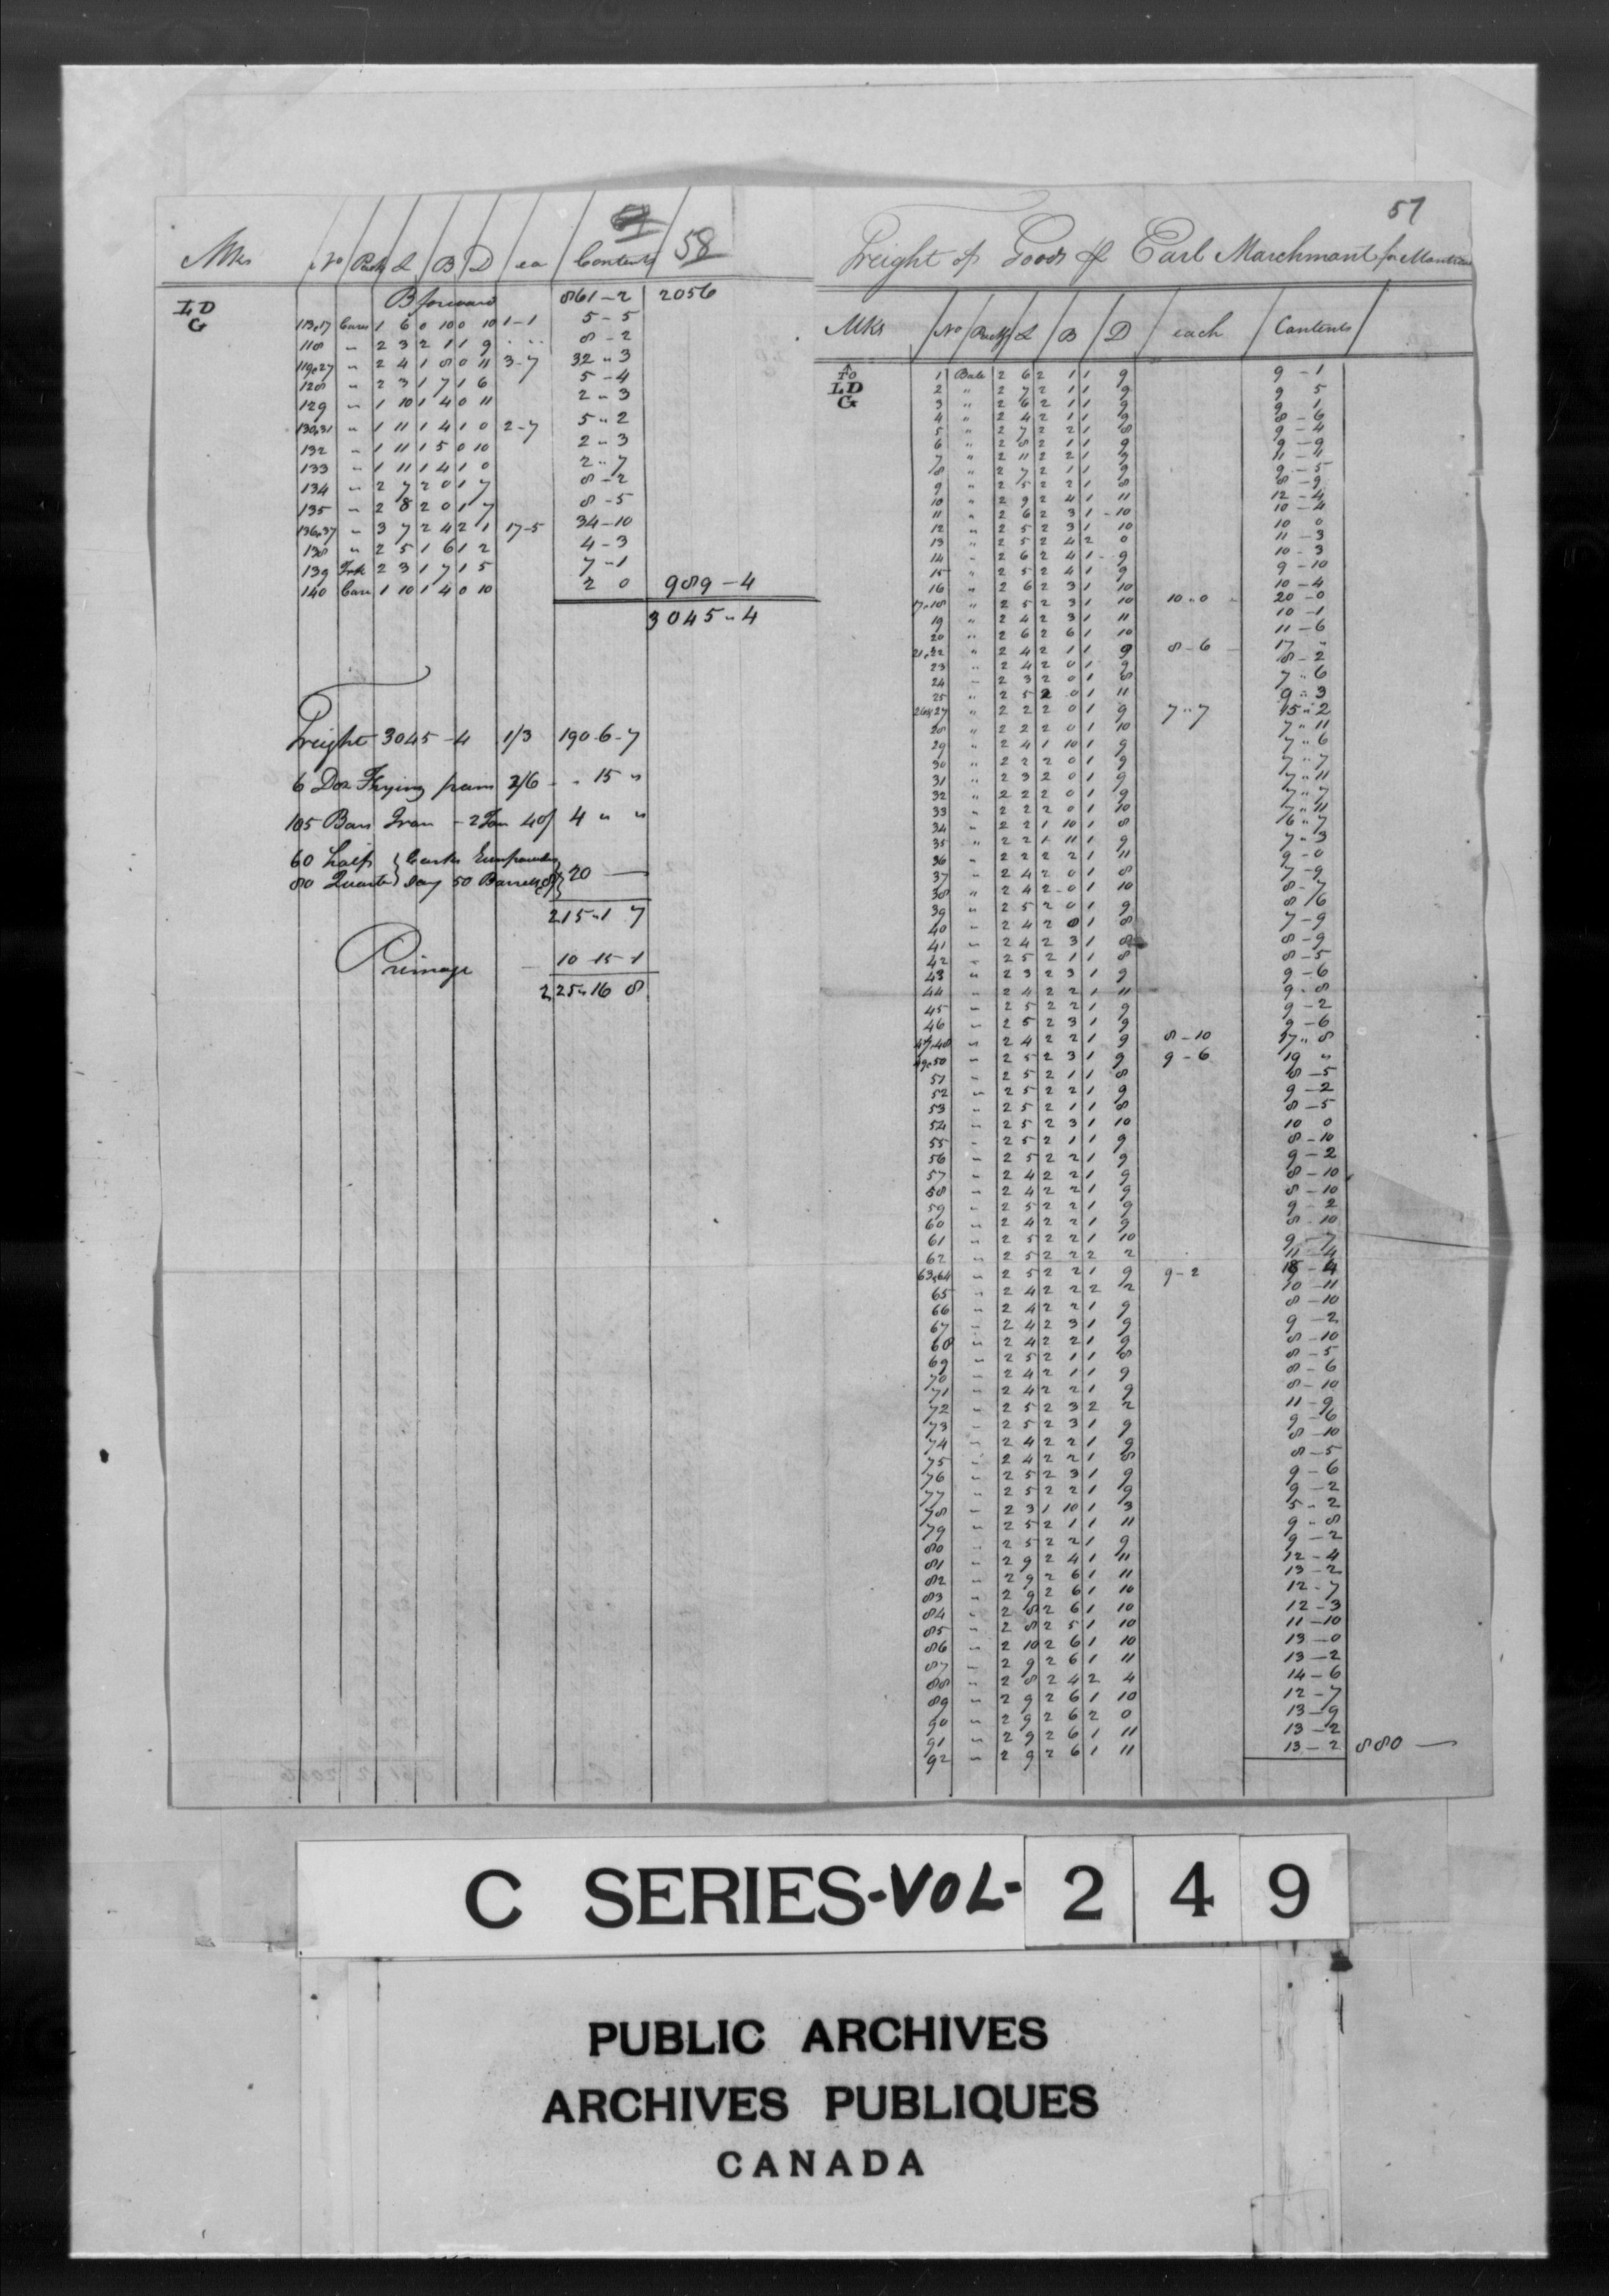 58
Mks No Packs L B D ea Contents
I D
G
B forward 861-2 2056
113.17 Cases 1 6 0 10 0 10 1-1 5-5
118 " 2 3 2 1 1 9 8-2
119.27 " 2 4 1 8 0 11 3-7 32"3
128 " 2 3 1 7 1 6 5-4
129 " 1 10 1 4 0 11 2"3
130.31 " 1 11 1 4 1 0 2-7 5"2
132 " 1 11 1 5 0 10 2-3
133 " 1 11 1 4 1 0 2"7
134 " 2 7 2 0 1 7 8-2
135 " 2 8 2 0 1 7 8-5
136.37 " 3 7 2 4 2 1 17-5 34-10
138 " 2 5 1 6 1 2 4-3
139 Trk 2 3 1 7 1 5 7-1
140 Case 1 10 1 4 0 10 2 0 989-4
3045"4
Freight 3045-4 1/3 190-6-7
6 Doz Frying pans 2/6 - " 15 "
105 Bars Iron - 2 Ton 40/ 4 " "
60 half } Casks Gunpowder
80 Quarter } say 50 Barrels 8/ } 20 —
215"1 7
Primage 10-15-1
225"16 8
57
Freight of Goods P Earl Marchmont for Montreal
Mks No Packs L B D each Contents
To
I D
G
1 Bale 2 6 2 1 1 9 9-1
2 " 2 7 2 1 1 9 9 5
3 " 2 6 2 1 1 9 9 1
4 " 2 4 2 1 1 9 8-6
5 " 2 7 2 2 1 8 9-4
6 " 2 8 2 1 1 9 9-9
7 " 2 11 2 2 1 9 11-4
8 " 2 7 2 1 1 9 9-5
9 " 2 5 2 2 1 8 8-9
10 " 2 9 2 4 1 11 12-4
11 " 2 6 2 3 1-10 10-4
12 " 2 5 2 3 1 10 10 0
13 " 2 5 2 4 2 0 11-3
14 " 2 6 2 4 1-9 10-3
15 " 2 5 2 4 1 9 9-10
16 " 2 6 2 3 1 10 10-4
17.18 " 2 5 2 3 1 10 10"0 20-0
19 " 2 4 2 3 1 11 10-1
20 " 2 6 2 6 1 10 11-6
21.22 " 2 4 2 1 1 9 8-6 17 "
23 " 2 4 2 0 1 9 8-2
24 " 2 3 2 0 1 8 7"6
25 " 2 5 2 0 1 11 9"3
26&27 " 2 2 2 0 1 9 7"7 15"2
28 " 2 2 2 0 1 10 7"11
29 " 2 4 1 10 1 9 7"6
30 " 2 2 2 0 1 9 7"7
31 " 2 3 2 0 1 9 7"11
32 " 2 2 2 0 1 9 7"7
33 " 2 2 2 0 1 10 7"11
34 " 2 2 1 10 1 8 6"7
35 " 2 2 1 11 1 9 7"3
36 " 2 2 2 2 1 11 9-0
37 " 2 4 2 0 1 8 7-9
38 " 2 4 2-0 1 10 8-7
39 " 2 5 2 0 1 9 8/6
40 " 2 4 2 0 1 8 7-9
41 " 2 4 2 3 1 8 8-9
42 " 2 5 2 1 1 8 8-5
43 " 2 3 2 3 1 9 9-6
44 " 2 4 2 2 1 11 9-8
45 " 2 5 2 2 1 9 9-2
46 " 2 5 2 3 1 9 9-6
47.48 " 2 4 2 2 1 9 8-10 17"8
49.50 " 2 5 2 3 1 9 9-6 19 "
51 " 2 5 2 1 1 8 8-5
52 " 2 5 2 2 1 9 9-2
53 " 2 5 2 1 1 8 8-5
54 " 2 5 2 3 1 10 10 0
55 " 2 5 2 1 1 9 8-10
56 " 2 5 2 2 1 9 9-2
57 " 2 4 2 2 1 9 8-10
58 " 2 4 2 2 1 9 8-10
59 " 2 5 2 2 1 9 9-2
60 " 2 4 2 2 1 9 8-10
61 " 2 5 2 2 1 10 9-7
62 " 2 5 2 2 2 2 11-4
63.64 " 2 5 2 2 1 9 9-2 18-4
65 " 2 4 2 2 2 2 10-11
66 " 2 4 2 2 1 9 8-10
67 " 2 4 2 3 1 9 9-2
68 " 2 4 2 2 1 9 8-10
69 " 2 5 2 1 1 8 8-5
70 " 2 4 2 1 1 9 8-6
71 " 2 4 2 2 1 9 8-10
72 " 2 5 2 3 2 2 11-9
73 " 2 5 2 3 1 9 9-6
74 " 2 4 2 2 1 9 8-10
75 " 2 4 2 2 1 8 8-5
76 " 2 5 2 3 1 9 9-6
77 " 2 5 2 2 1 9 9-2
78 " 2 3 1 10 1 3 5"2
79 " 2 5 2 1 1 11 9"8
80 " 2 5 2 2 1 9 9-2
81 " 2 9 2 4 1 11 12-4
82 " 2 9 2 6 1 11 13-2
83 " 2 9 2 6 1 10 12-7
84 " 2 8 2 6 1 10 12-3
85 " 2 8 2 5 1 10 11-10
86 " 2 10 2 6 1 10 13-0
87 " 2 9 2 6 1 11 13-2
88 " 2 8 2 4 2 4 14-6
89 " 2 9 2 6 1 10 12-7
90 " 2 9 2 6 2 0 13-9
91 " 2 9 2 6 1 11 13-2
92 " 2 9 2 6 1 11 13-2 880 —
C SERIES-VOL- 2 4 9
PUBLIC ARCHIVES
ARCHIVES PUBLIQUES
CANADA